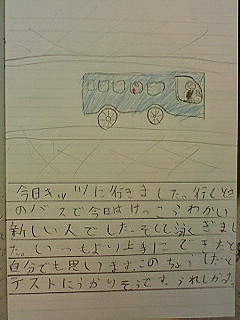 今日キッツに行きました。行くとき
のバスで今日はけっこうわかい
新しい人でした。そして泳ぎまし
た。いつもより上手にできたと
自分でも思います。このちょうしだと
テストにうかりそうです。うれしかった。